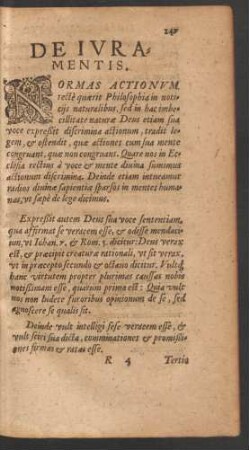 241
DE IVRA-
MENTIS.
NORMAS ACTIONVM
rectè quærit Philosophia in noti-
cijs naturalibus, sed in hac imbe-
cillitate naturæ Deus etiam sua
voce expressit discrimina actionum, tradit le-
gem, & ostendit, quæ actiones cum sua mente
congruant, quæ non congruant. Quare nos in Ec-
clesia rectius à voce & mente diuina sumimus
actionum discrimina. Deinde etiam intueamur
radios diuinæ sapientiæ sparsos in mentes huma-
nas, vt sæpè de lege dicimus.
Expressit autem Deus sua voce sententiam,
qua affirmat se veracem esse, & odisse mendaci-
um, vt Iohan. & Rom. 3. dicitur: Deus verax
est, & præcipit creaturæ rationali, vt sit verax,
vt in præcepto secundo & octauo dicitur. Vult
hanc virtutem propter plurimas causas nobis
notissimam esse, quarum prima est: Quia vult
nos non ludere furoribus opinionum de se, sed
agnoscere se qualis sit.
Deinde vult intelligi sese veracem esse, &
vult sciri sua dicta, comminationes & promissi-
ones firmas & ratas esse.
R 4 Tertia